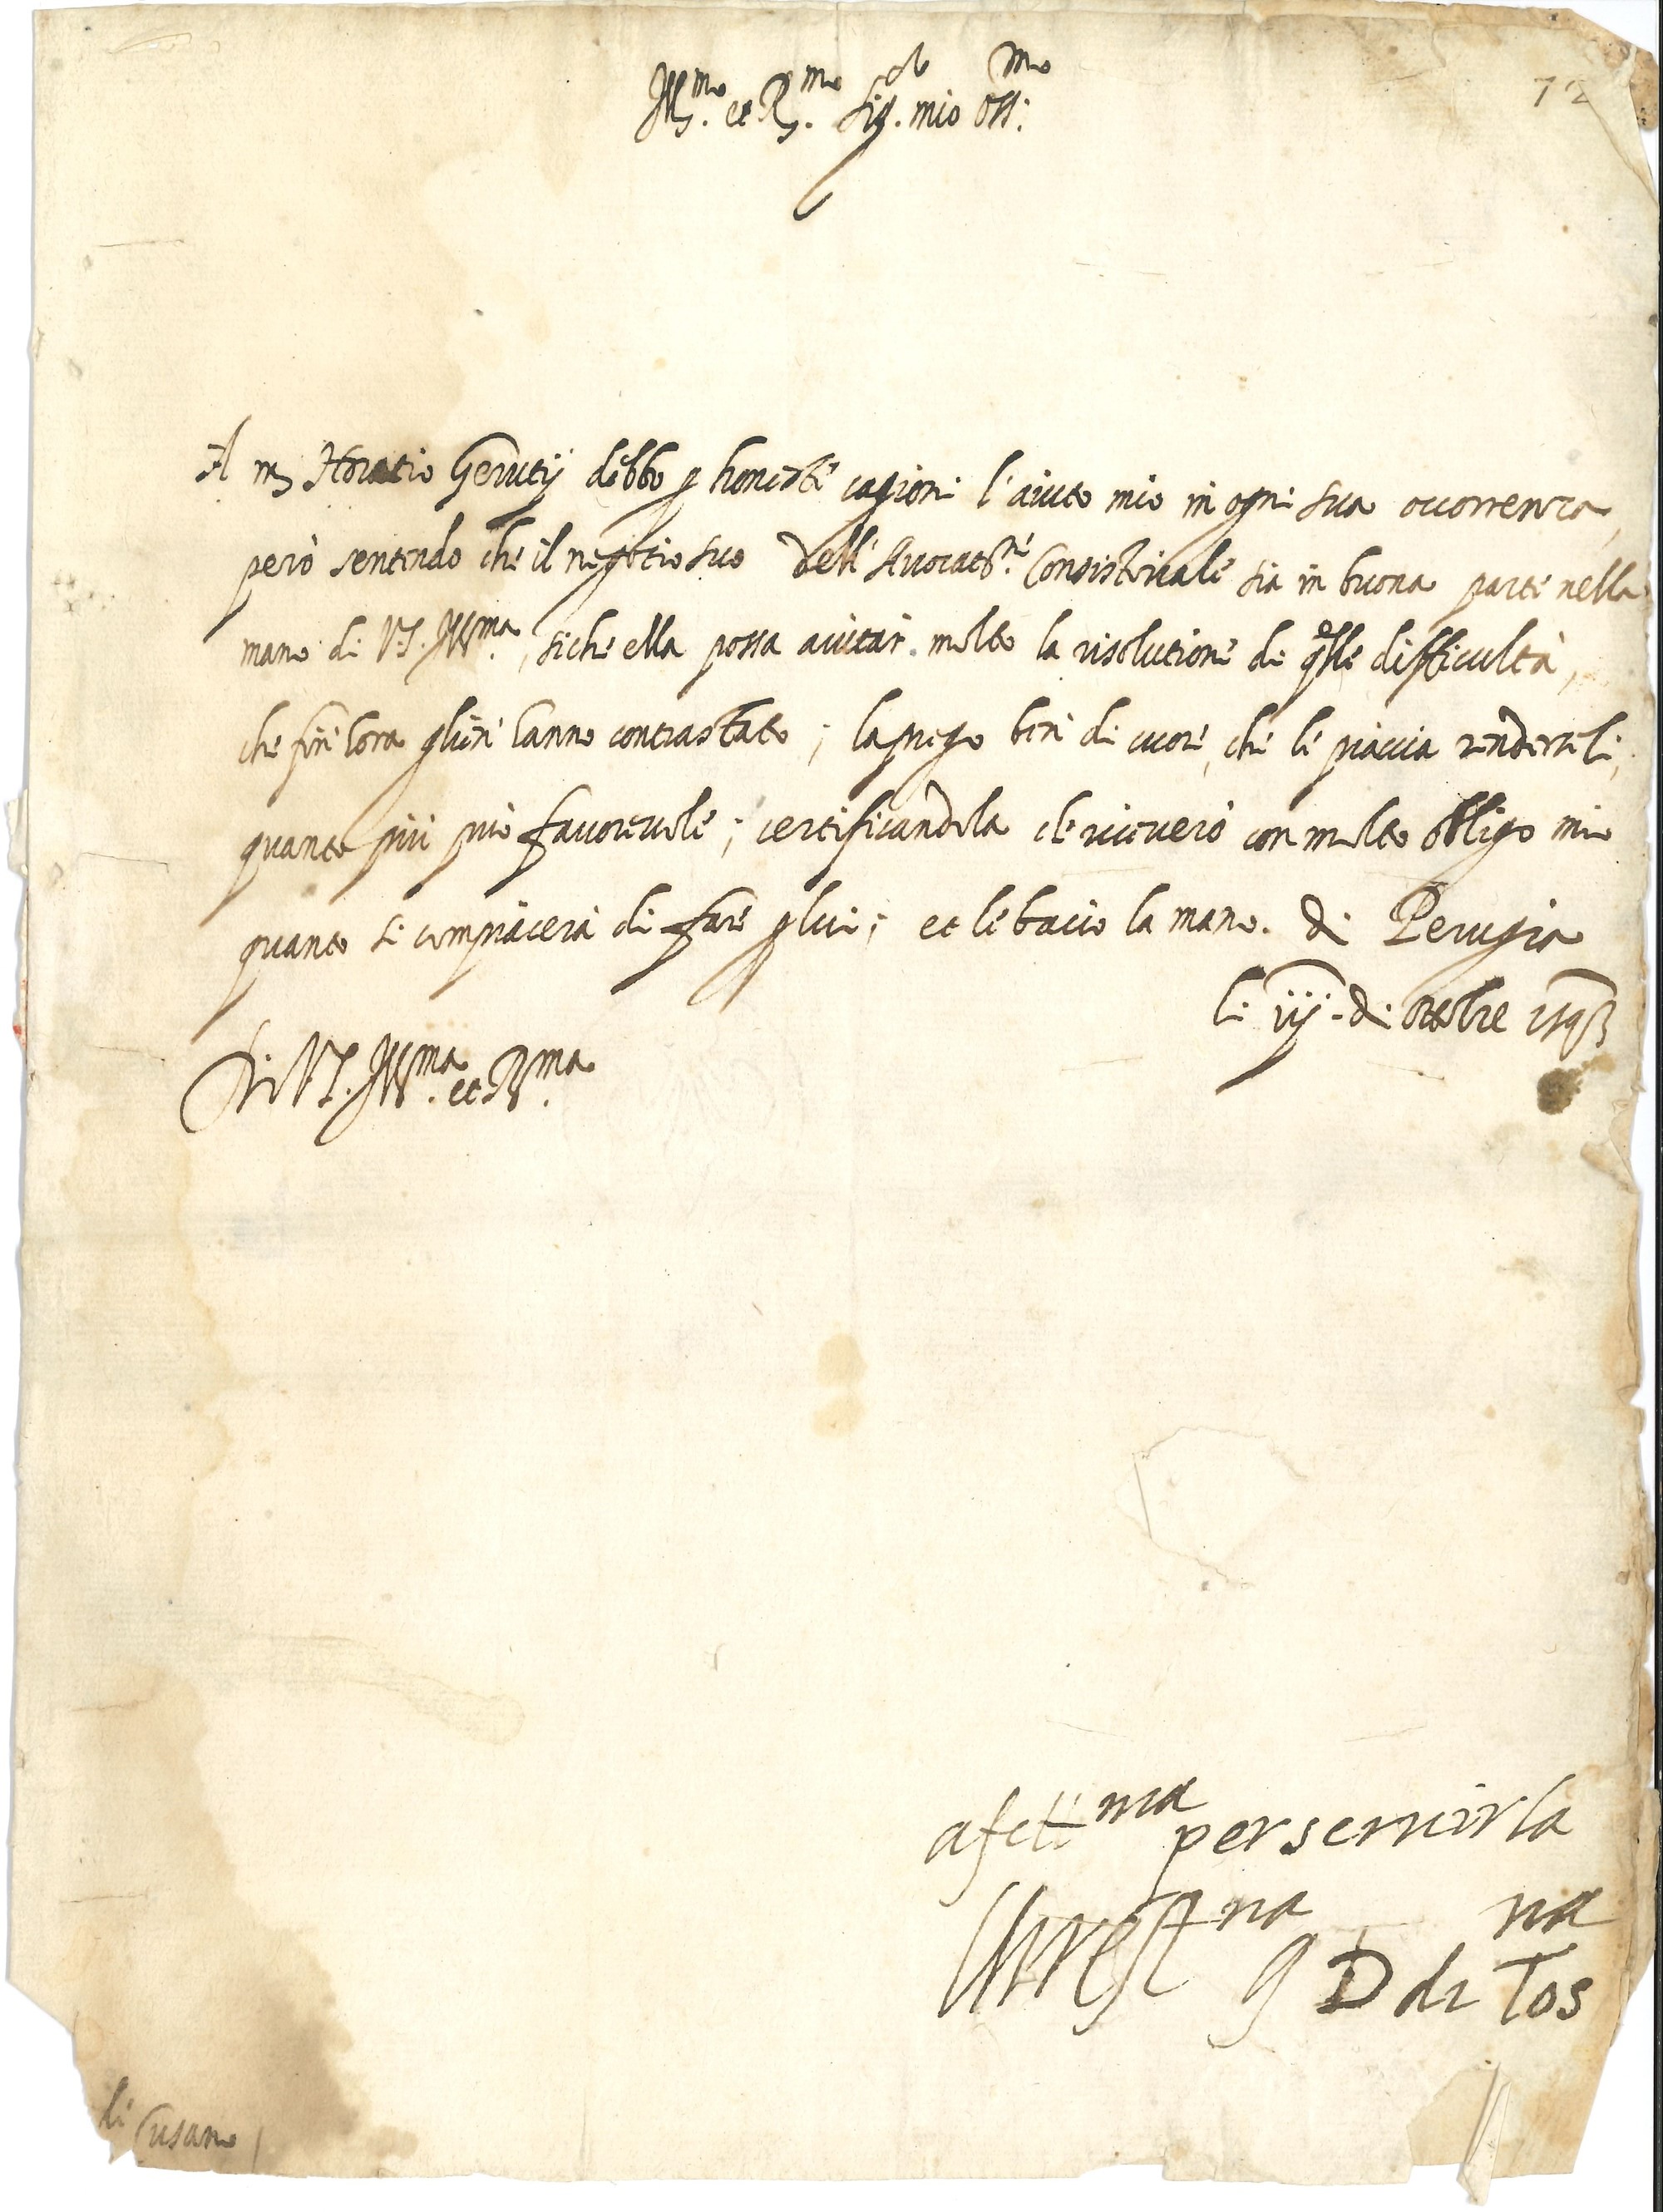 72
Ill.mo et R.mo Sig.or mio oss.mo
A m. Horatio Gerutij debbo p honeste cagioni l'aiuto mio in ogni sua occorrenza,
però sentendo che il negotio suo dell'Avocat.ne Consistoriale sia in buona parte nella
mano di VS. Ill.ma, siche ella possa aiutar molto la risolutione di qlle difficultà,
che fin' hora gli hanno contrastato; la prego ben di cuore, che le piaccia rendersli,
quanto più può favorevole; certificandola che riceverò con molto obligo mio
quanto si compiacerà di fare p lui; et le bacio la mano. di Perugia
li iij. di ottobre 1593
Di VS. Ill.ma et R.ma
afett.ma per servirla
Chrest.na g D di Tos.na
di Cusano